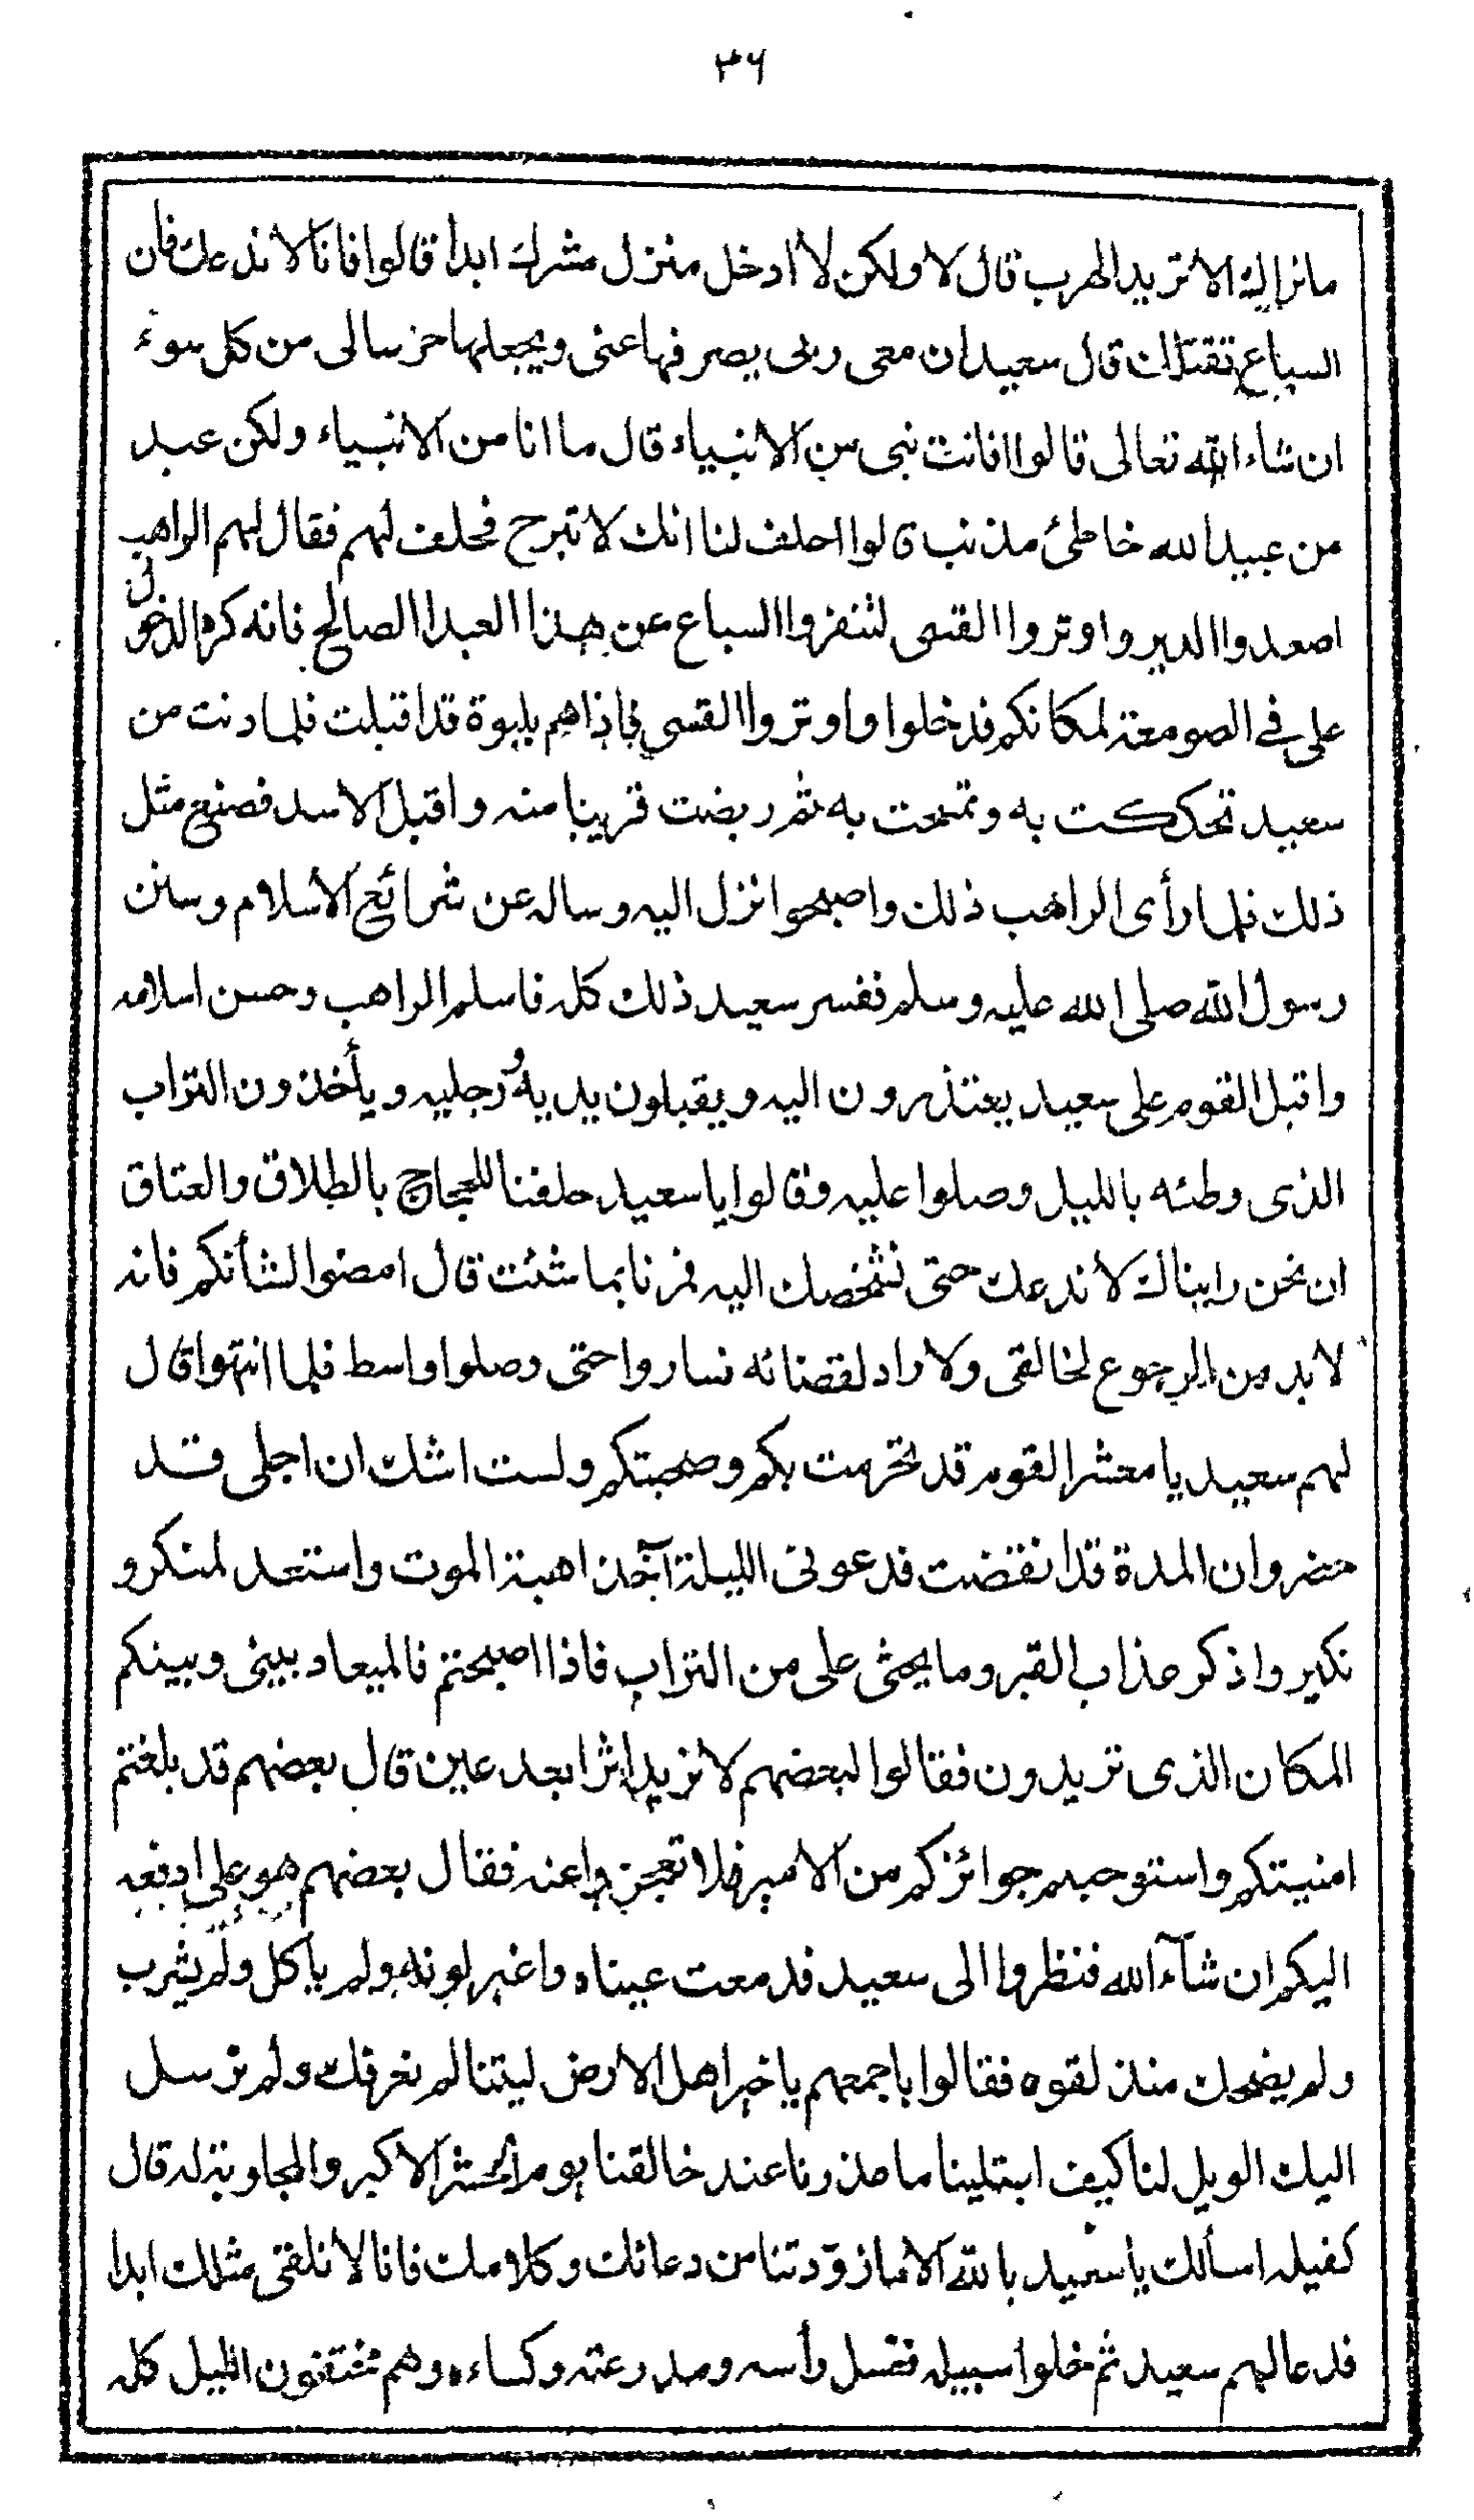 ٣٦
ما نراك الا تريد الهرب قال لا ولكن لا أدخل منزل مشرك ابدا قالوا فانا لا ندعك فان
السباع تقتلك قال سعيد ان معى ربى يصرفها عنى ويجعلها حرسا لى من كل سوء
ان شاء الله تعالى قالوا افانت نبى من الانبياء قال ما انا من الانبياء ولكن عبد
من عبيد الله خاطئ مذنب قالوا احلف لنا انك لا تبرح فحلف لهم فقال لهم الراهب
اصعدوا الدير واوتروا القسى لتنفروا السباع عن هذا العبد الصالح فانه كره الدخول
على فى الصومعة لمكانكم فدخلوا واوتروا القسى فاذا هم بلبوة قد اقبلت فلما دنت من
سعيد تحككت به وتمسحت به ثم ربضت قريبا منه واقبل الاسد فصنع مثل
ذلك فلما رأى الراهب ذلك واصبحوا نزل اليه وساله عن شرائع الاسلام وسنن
رسول الله صلى الله عليه وسلم ففسر سعيد ذلك كله فاسلم الراهب وحسن اسلامه
واقبل القوم على سعيد يعتذرون اليه ويقبلون يديه ورجليه ويأخذون التراب
الذى وطئه بالليل وصلوا عليه وقالوا يا سعيد حلفنا للحجاج بالطلاق والعتاق
ان نحن رايناك لا ندعك حتى نشخصك اليه فمرنا بما شئت قال امضوا لشأنكم فانه
لا بد من الرجوع لخالقى ولا راد لقضائه فساروا حتى وصلوا واسط فلما انتهوا قال
لهم سعيد يا معشر القوم قد تحرمت بكم وصحبتكم ولست اشك ان اجلى قد
حضر وان المدة قد انقضت فدعونى الليلة آخذ اهبة الموت واستعد لمنكر و
نكير واذكر عذاب القبر وما يحثى على من التراب فاذا اصبحتم فالميعاد بينى وبينكم
المكان الذى تريدون فقالوا لبعضهم لا نريد اثرا بعد عين قال بعضهم قد بلغتم
امنيتكم واستوجبتم جوائزكم من الامير فلا تعجزوا عنه فقال بعضهم هو على ادفعه
اليكم ان شآء الله فنظروا الى سعيد فدمعت عيناه واغبر لونه ولم ياكل ولم يشرب
ولم يضحك منذ لقوه فقالوا باجمعهم يا خير اهل الارض ليتنا لم نعرفك ولم نرسل
اليك الويل لنا كيف ابتلينا ما عذرنا عند خالقنا يوم الحشر الاكبر والمجاوبة له قال
كفيله اسألك يا سعيد بالله الا ما زودتنا من دعائك وكلامك فانا لا نلقى مثلك ابدا
فدعا لهم سعيد ثم خلوا سبيله فغسل رأسه ومدرعته وكساءه وهم مختفون الليل كله